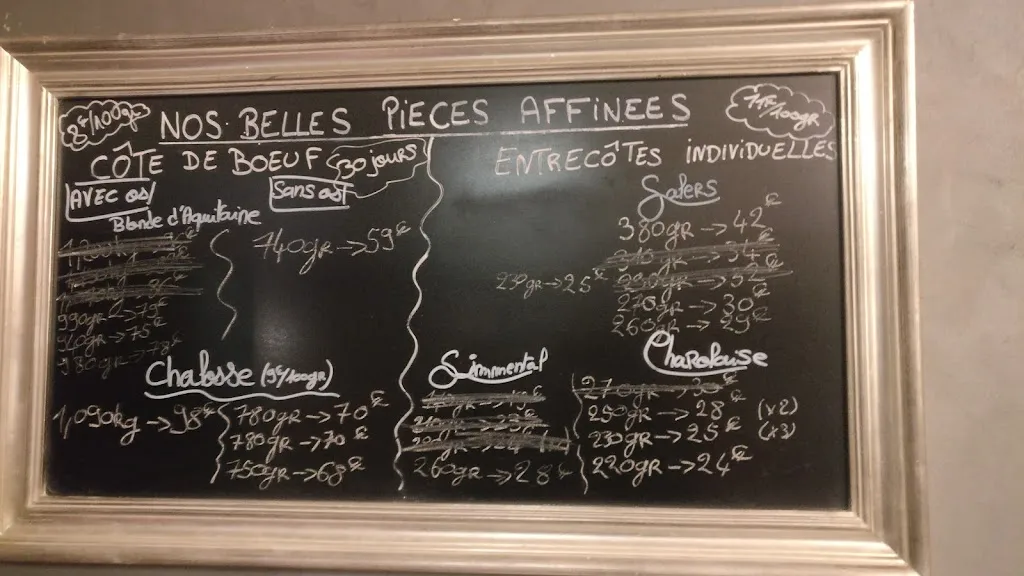 8€/100gr
NOS BELLES PIÈCES AFFINÉES
11€/100gr
CÔTE DE BOEUF 30 jours
AVEC os
Sans os
Blonde d'Aquitaine
740gr → 59€
990gr → 79€
Chalosse (9€/100gr)
1,090kg → 98€
780gr → 70€
780gr → 70€
750gr → 68€
ENTRECÔTES INDIVIDUELLES
Salers
380gr → 42€
230gr → 25€
270gr → 30€
260gr → 29€
Simmental
260gr → 28€
Charolaise
270gr → 30€
250gr → 28€ (x2)
230gr → 25€ (x3)
220gr → 24€